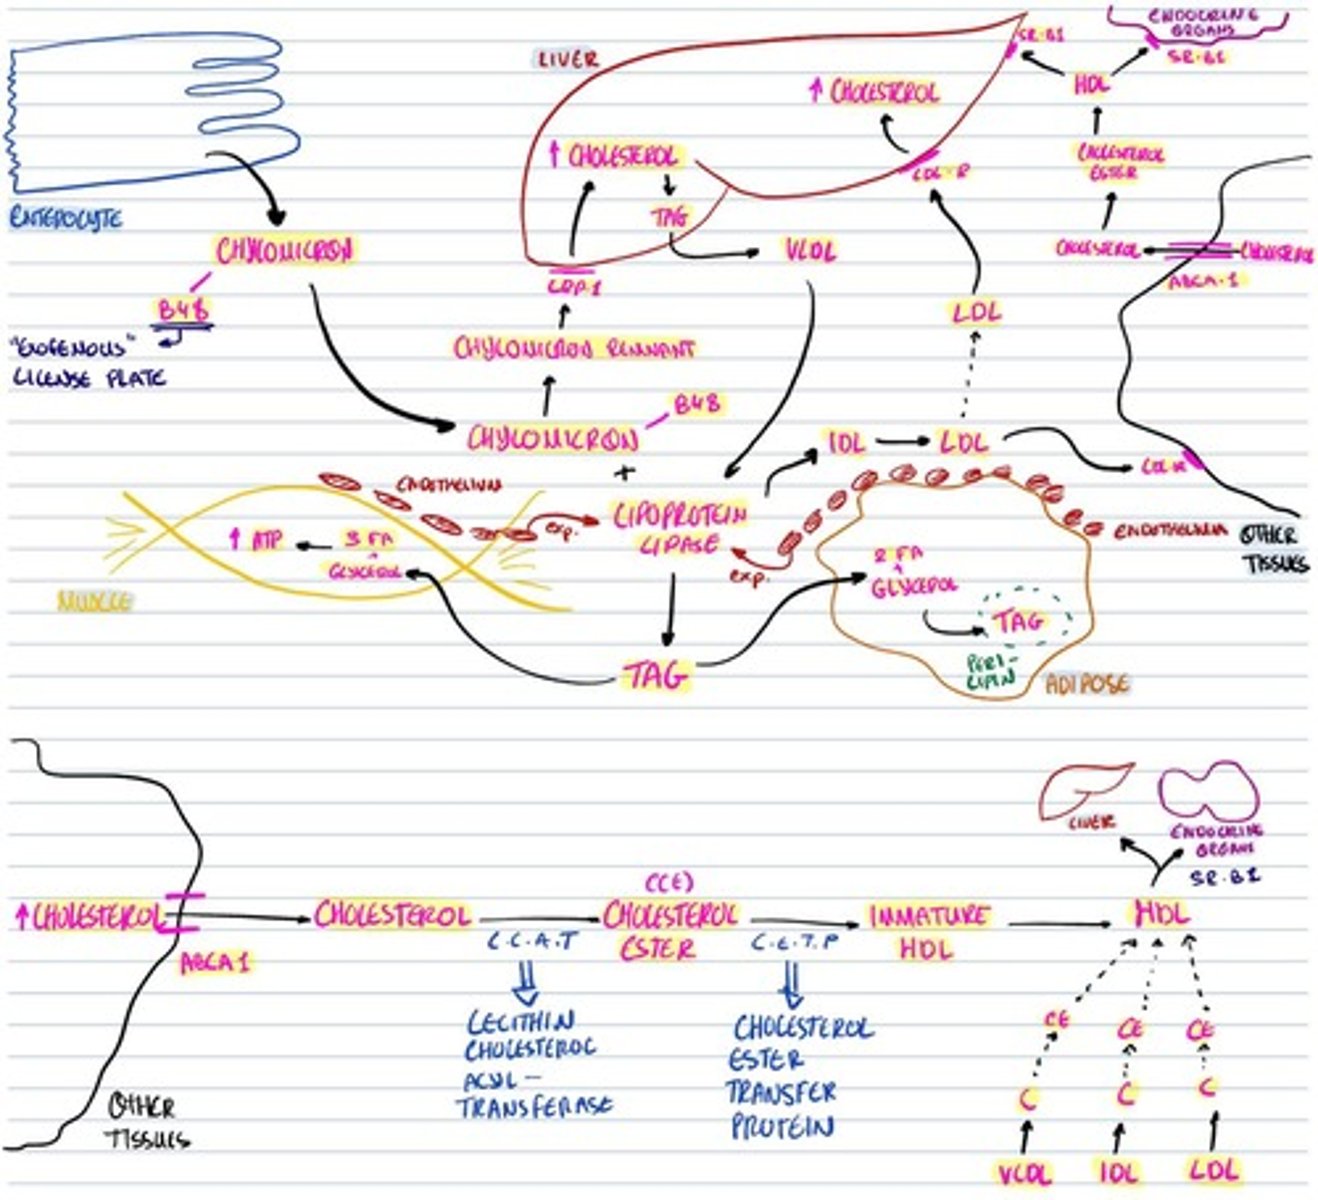 ENDOCRINE
ORGANS
SR-B1
SR-B1
LIVER
HDL
↑ CHOLESTEROL
↑ CHOLESTEROL
CHOLESTEROL
ESTER
LDL-R
TAG
ENTEROCYTE
CHYLOMICRON
VLDL
CHOLESTEROL
CHOLESTEROL
ABCA-1
B48
LDL
"EXOGENOUS"
LICENSE PLATE
CHYLOMICRON REMNANT
B48
CHYLOMICRON
+
IDL
LDL
LDL-R
ENDOTHELIUM
LIPOPROTEIN
LIPASE
exp.
exp.
ENDOTHELIUM
OTHER
TISSUES
↑ ATP
3 FA
GLYCEROL
MUSCLE
GLYCEROL
TAG
PERI-
LIPIN
ADIPOSE
TAG
LIVER
ENDOCRINE
ORGANS
SR-B1
↑CHOLESTEROL
ABCA1
CHOLESTEROL
L.C.A.T
(CE)
CHOLESTEROL
ESTER
C.E.T.P
IMMATURE
HDL
HDL
LECITHIN
CHOLESTEROL
ACYL-
TRANSFERASE
CHOLESTEROL
ESTER
TRANSFER
PROTEIN
CE
CE
CE
C
C
C
OTHER
TISSUES
VLDL
IDL
LDL